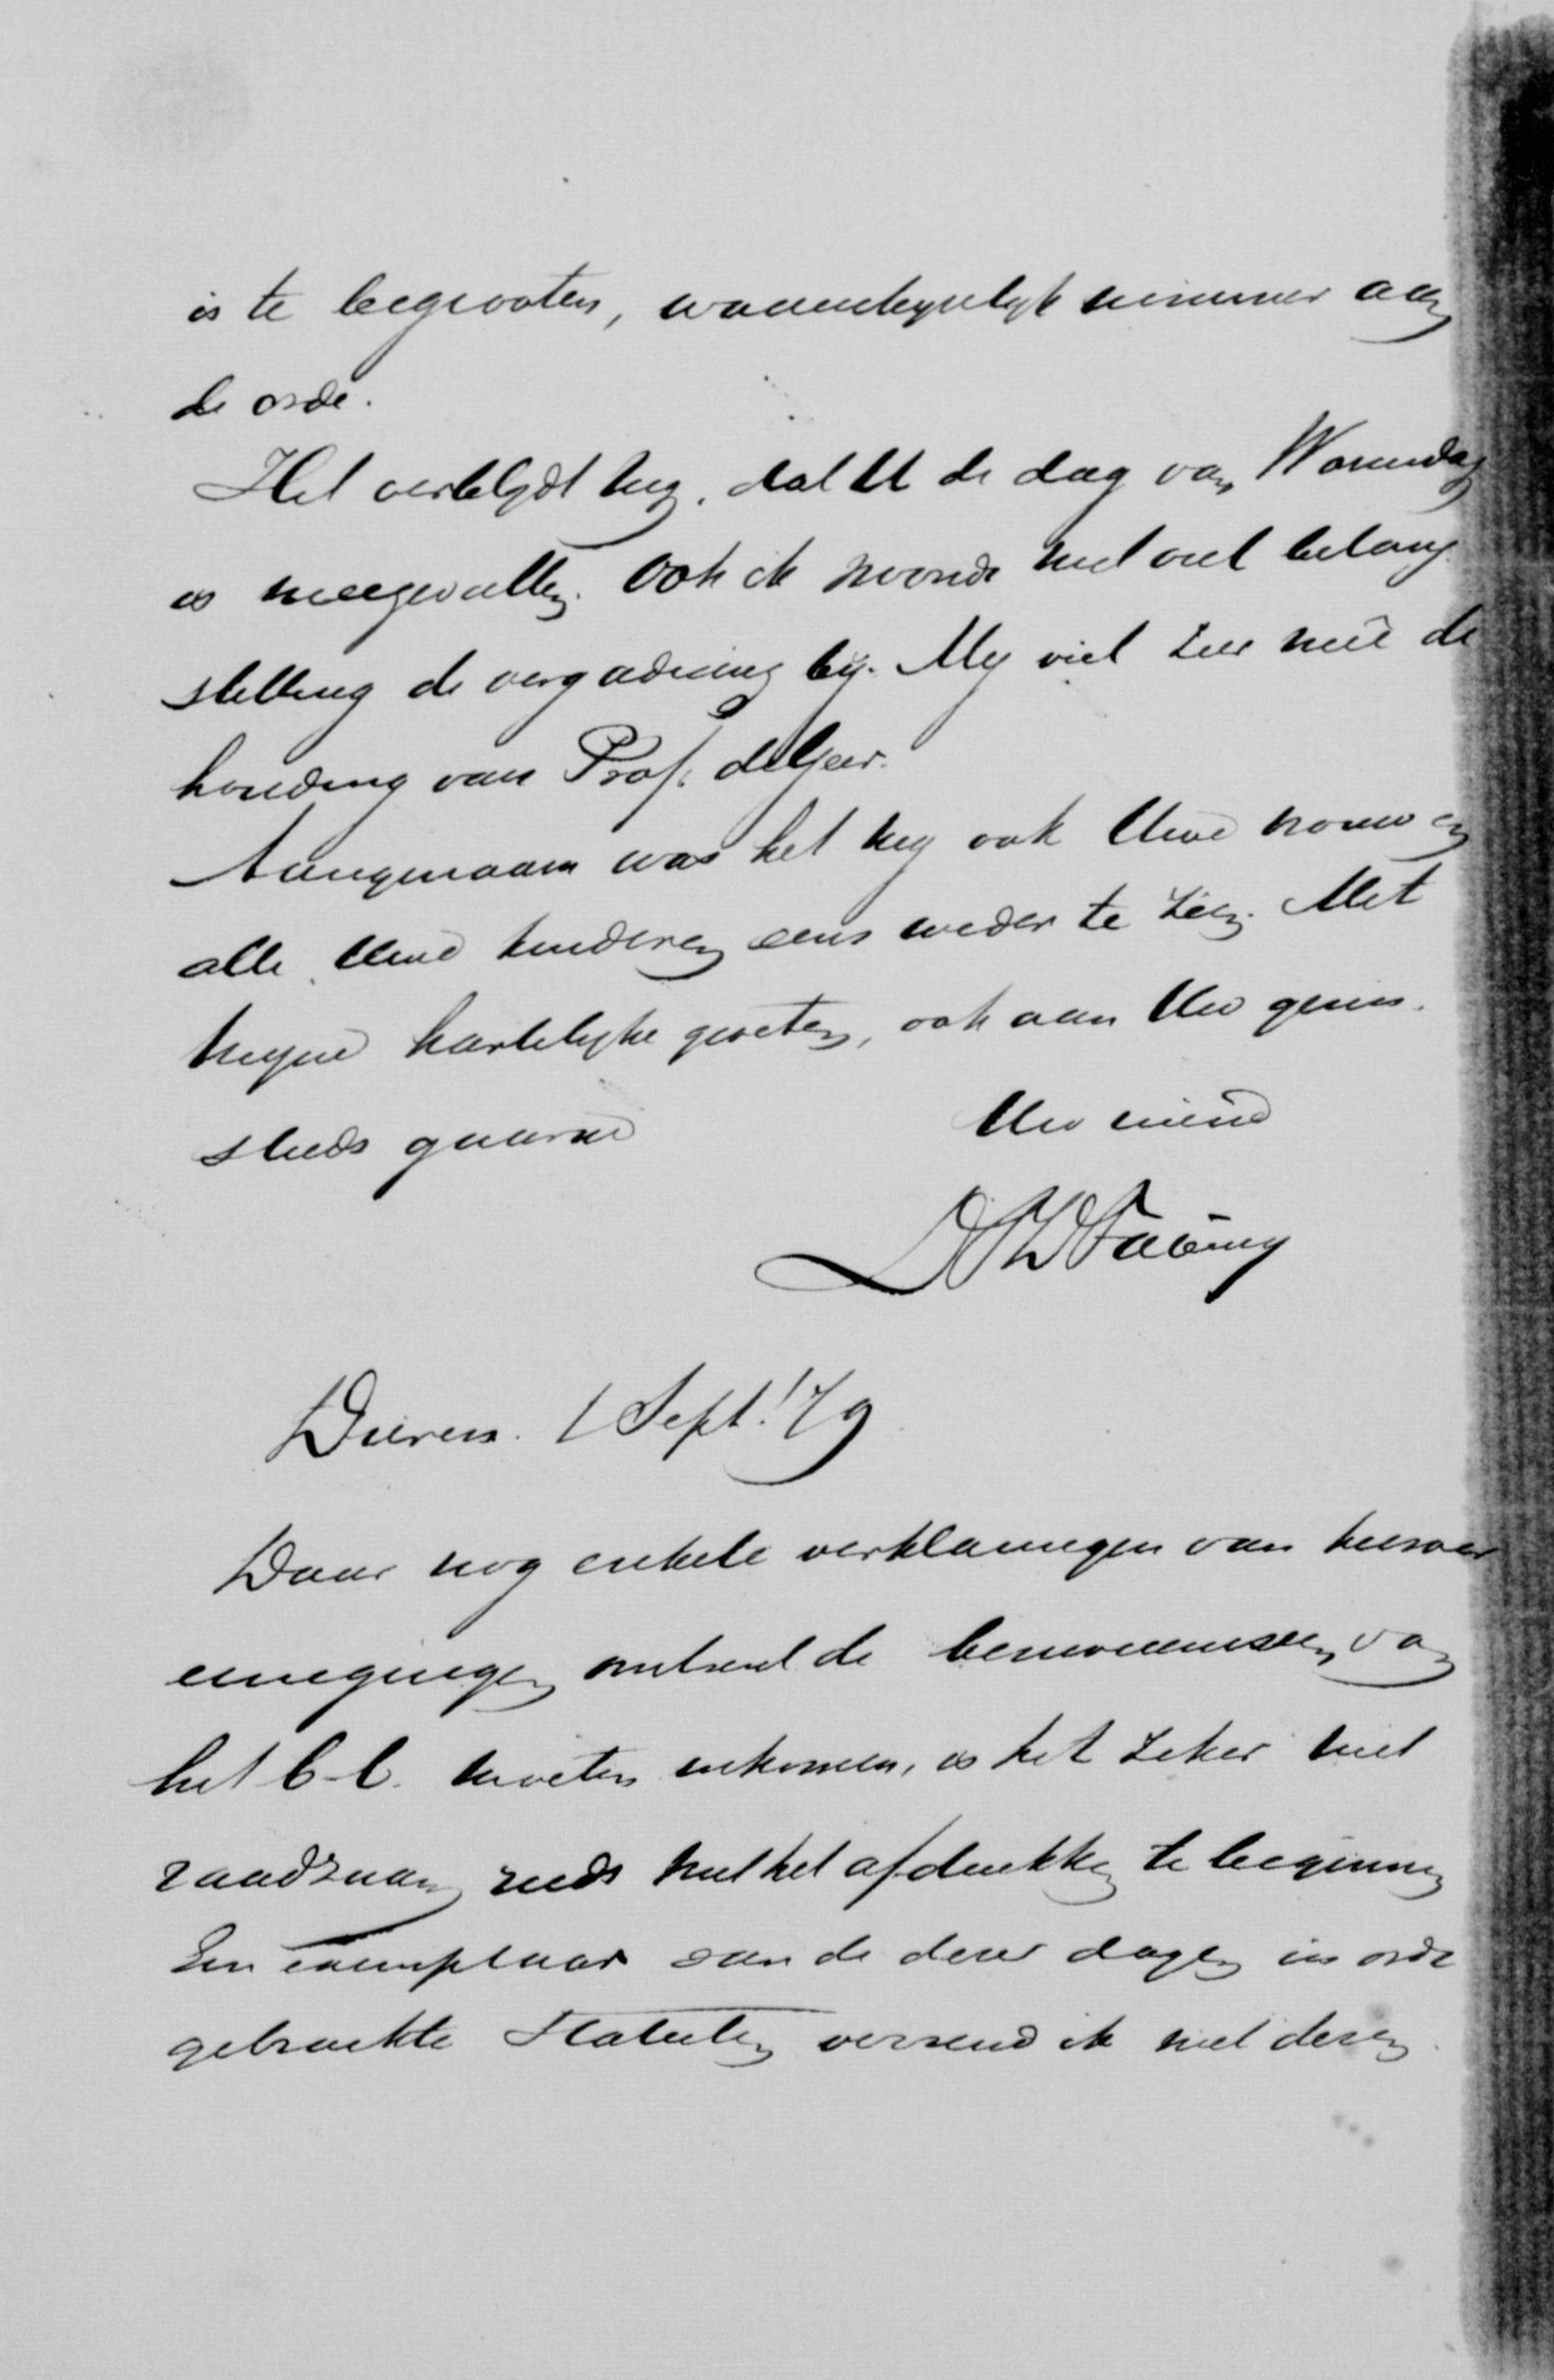 is te begrooten, waarschynlyk nimmer aan
de orde.
Het verblydt my, dat U de dag van Woensdag
is meegevallen. Ook ik woonde met veel belang-
stelling de vergadering by. My viel zeer mee de
houding van Prof. de Geer.
Aangenaam was het my ook Uwe vrouw en
alle Uwe kinderen eens weder te zien. Met
myne hartelyke groeten, ook aan Uw gezin.
steeds gaarne Uw vriend
Dieren. 1 Sept. '79
Daar nog enkele verklaringen van kiesver
eenigingen omtrent de benoemen van
het C.C. moeten inkomen, is het zeker niet
raadzaam reeds met het afdrukken te beginnen
Een exemplaar van de dezer dagen in orde
gebrachte Statuten verzend ik met dezen.